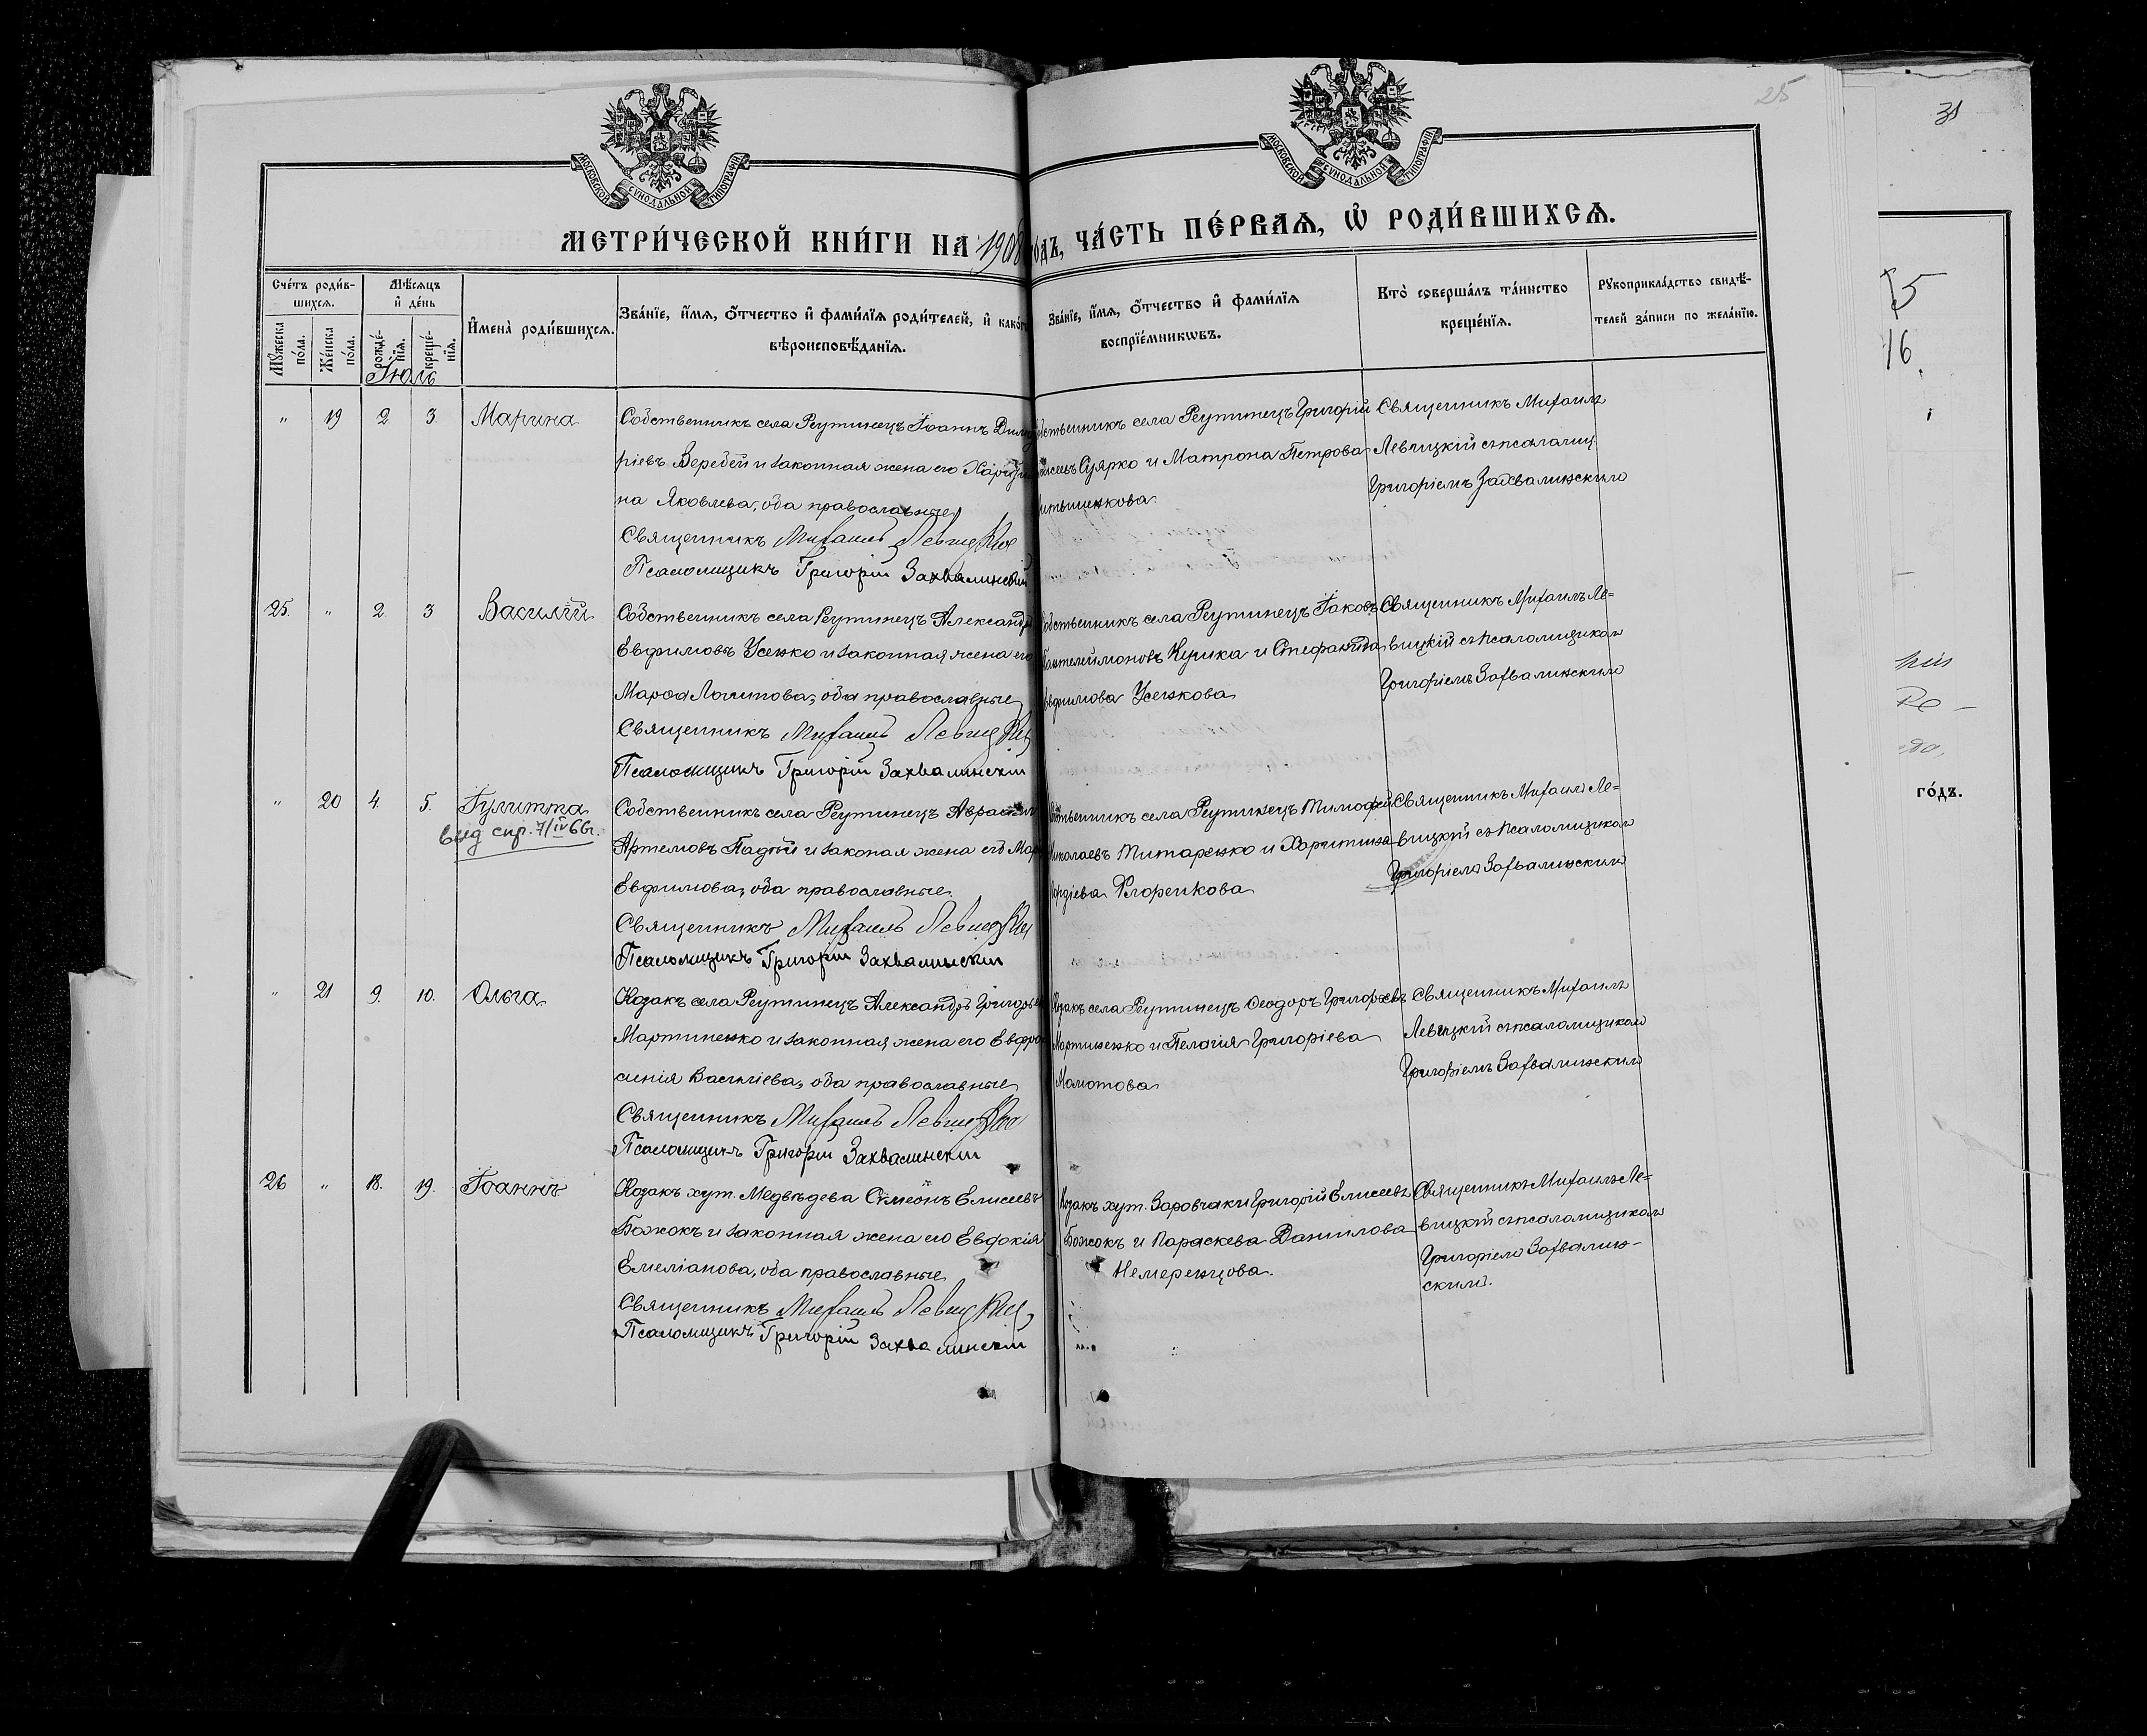 25
31
МОСКОВСКОЙ СѴНОДАЛЬНОЙ ТИПОГРАФІИ
МОСКОВСКОЙ СѴНОДАЛЬНОЙ ТИПОГРАФІИ
МЕТРИ́ЧЕСКОЙ КНИ́ГИ НА 1908 го́дъ, ЧА́СТЬ ПЕ́РВАѦ, Ѽ РОДИ́ВШИХСѦ.
Сче́тъ роди́в-
шихсѧ.
Мꙋ́жеска по́ла.
Же́нска по́ла.
Мѣ́сѧцъ
и҆ де́нь
рожде́-нїѧ.
креще́-нїѧ.
И҆мена̀ роди́вшихсѧ.
Зва́нїе, и҆́мѧ, ѻ҆́тчество и҆ фами́лїѧ роди́телей, и҆ како́гѡ
вѣроисповѣ́данїѧ.
Зва́нїе, и҆́мѧ, ѻ҆́тчество и҆ фами́лїѧ
воспрїе́мникѡвъ.
Кто̀ соверша́лъ та́инство
креще́нїѧ.
Рꙋкоприкла́дство свидѣ́-
телей за́писи по жела́нїю.
Іюль
" 19 2 3. Марина
Собственникъ села Реутинецъ Іоаннъ Дими
ріевъ Веребей и законная жена его Харити
на Яковлева, оба православные
Священникъ Михаилъ Левицкій
Псаломщикъ Григорій Захвалинскій
села Реутинецъ Григорій
Суярко и Матрона Петрова
Священникъ Михаилъ
Левицкій съ псаломщ
Григоріемъ Захвалинскимъ
25. " 2 3 Василій
Собственникъ села Реутинецъ Александръ
Евфимовъ Усенко и законная жена его
Марѳа Логинова, оба православные
Священникъ Михаилъ Левицкій
Псаломщикъ Григорій Захвалинскій
села Реутинецъ Іаковъ
Пантелеимоновъ Куцика и Стефанида
Евфимова Усенкова
Священникъ Михаилъ Ле=
вицкій съ псаломщикомъ
Григоріемъ Захвалинскимъ
" 20 4 5. Іулитта
выд спр. 7/IV 66г.
Собственникъ села Реутинецъ Авраамъ
Артемовъ Падій и законая жена его Мар
Евфимова, оба православные
Священникъ Михаилъ Левицкій
Псаломщикъ Григорій Захвалинскій
села Реутинецъ Тимофей
Николаевъ Титаренко и Харитина
Флоренкова
Священникъ Михаилъ Ле=
вицкій съ псаломщикомъ
Григоріемъ Захвалинскимъ
" 21 9. 10. Ольга
Козакъ села Реутинецъ Александръ Григорьев
Мартиненко и законная жена его Евфро
синія Василіева, оба православные
Священникъ Михаилъ Левицкій
Псаломщикъ Григорій Захвалинскій
Козакъ села Реутинецъ Ѳеодоръ Григорьевъ
Мартиненко и Пелагія Григоріева
Мамотова
Священникъ Михаилъ
Левицкій съ псаломщикомъ
Григоріемъ Захвалинскимъ
26 " 18. 19. Іоаннъ
Козакъ хут. Медвѣдева Симеонъ Елисеевъ
Божокъ и законная жена его Евдокія
Емеліанова, оба православные
Священникъ Михаилъ Левицкій
Псаломщикъ Григорій Захвалинскій
Козакъ хут. Григорій Елисеевъ
Божокъ и Параскева Даниилова
Немеренцова.
Священникъ Михаилъ Ле-
вицкій съ псаломщикомъ
Григоріемъ Захвалин-
скимъ.
15
16.
го́дъ.